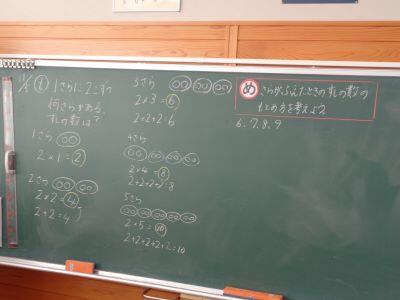 ① 1さらに2こずつ
何さらかある。
すしの数は?
1さら
2×1=2
2さら
2×2=4
2+2=4
3さら
2×3=6
2+2+2=6
4さら
2×4=8
2+2+2+2=8
5さら
2×5=10
2+2+2+2+2=10
め さらがふえたときのすしの数の
もとめ方を考えよう
6、7、8、9